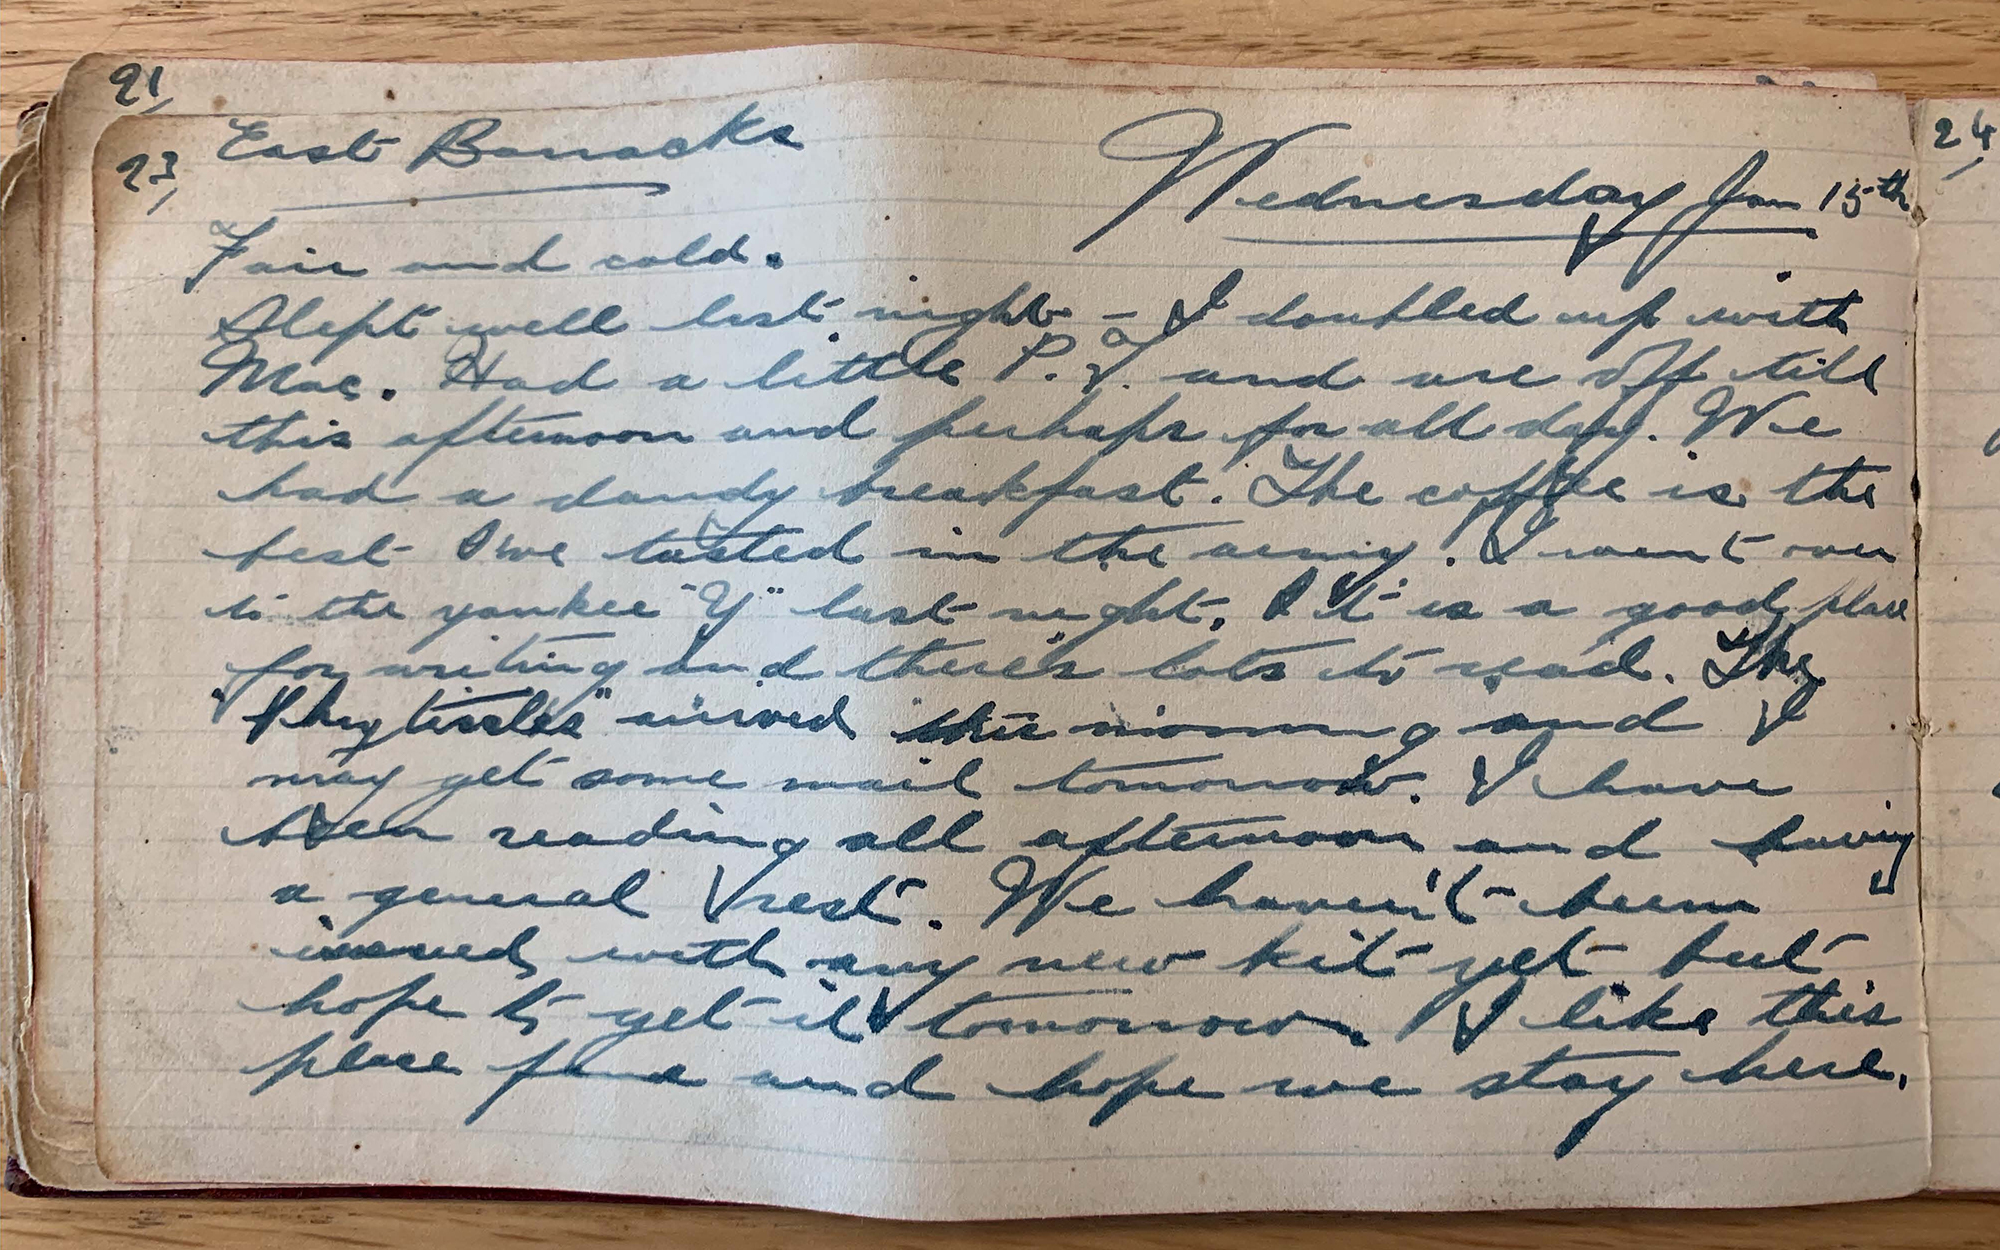 21,
23,
East Barracks
Wednesday Jan 15th
24,
Fair and cold.
Slept well last night - I doubled up with
Mac. Had a little P.T. and are off till
this afternoon and perhaps for all day. We
had a dandy breakfast. The coffee is the
best I've tasted in the army. I went over
to the yankee "Y" last night. It is a good place
for writing and there's lots to read. The
arrived this morning and I
may get some mail tomorrow. I have
been reading all afternoon and having
a general rest. We haven't been
issued with any new kit yet but
hope to get it tomorrow I like this
place fine and hope we stay here.